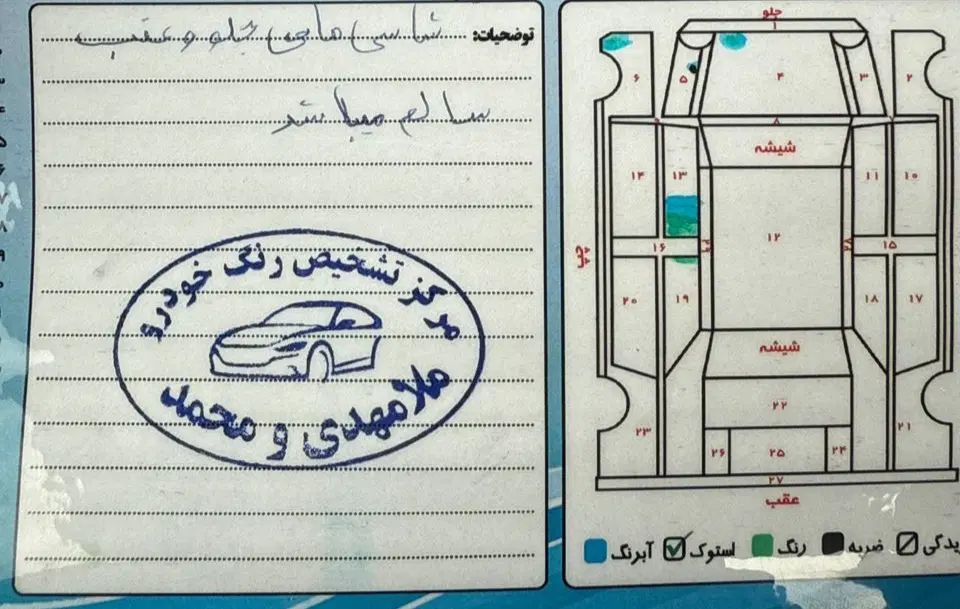 توضیحات: شاسی های جلو و عقب
سالم میباشد
مرکز تشخیص رنگ خودرو
ملامهدی و محمد
جلو
۱
۲
۳
۴
۵
۶
۸
شیشه
۱۰
۱۱
۱۲
۱۳
۱۴
چپ
۱۵
۱۶
۱۷
۱۸
۱۹
۲۰
شیشه
۲۱
۲۲
۲۳
۲۴
۲۵
۲۶
۲۷
عقب
یدگی ضربه رنگ استوک آبرنگ